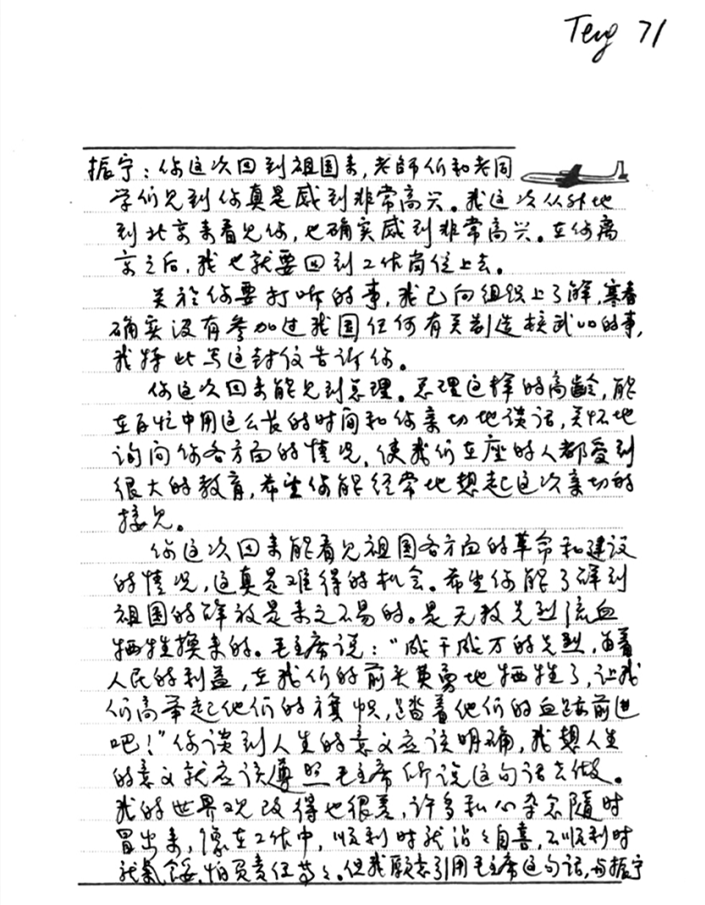 Teng 71
振宁：你这次回到祖国来，老师们和老同
学们见到你真是感到非常高兴。我这次从外地
到北京来看见你，也确实感到非常高兴。在你离
京之后，我也就要回到工作岗位上去。
关於你要打听的事，我已向组织上了解，寒春
确实没有参加过我国任何有关制造核武器的事，
我特此写这封信告诉你。
你这次回来能见到总理。总理这样的高龄，能
在百忙中用这么长的时间和你亲切地谈话，关怀地
询问你各方面的情况，使我们在座的人都受到
很大的教育，希望你能经常地想起这次亲切的
接见。
你这次回来能看见祖国各方面的革命和建设
的情况，这真是难得的机会。希望你能了解到
祖国的解放是来之不易的。是无数先烈流血
牺牲换来的。毛主席说：“成千成万的先烈，为着
人民的利益，在我们的前头英勇地牺牲了，让我
们高举起他们的旗帜，踏着他们的血迹前进
吧！”你谈到人生的意义应该明确，我想人生
的意义就应该遵照毛主席所说这句话去做。
我的世界观改得也很差，许多私心杂念随时
冒出来，像在工作中，顺利时就沾沾自喜，不顺利时
就气馁，怕负责任等等。但我愿意引用毛主席这句话，与振宁